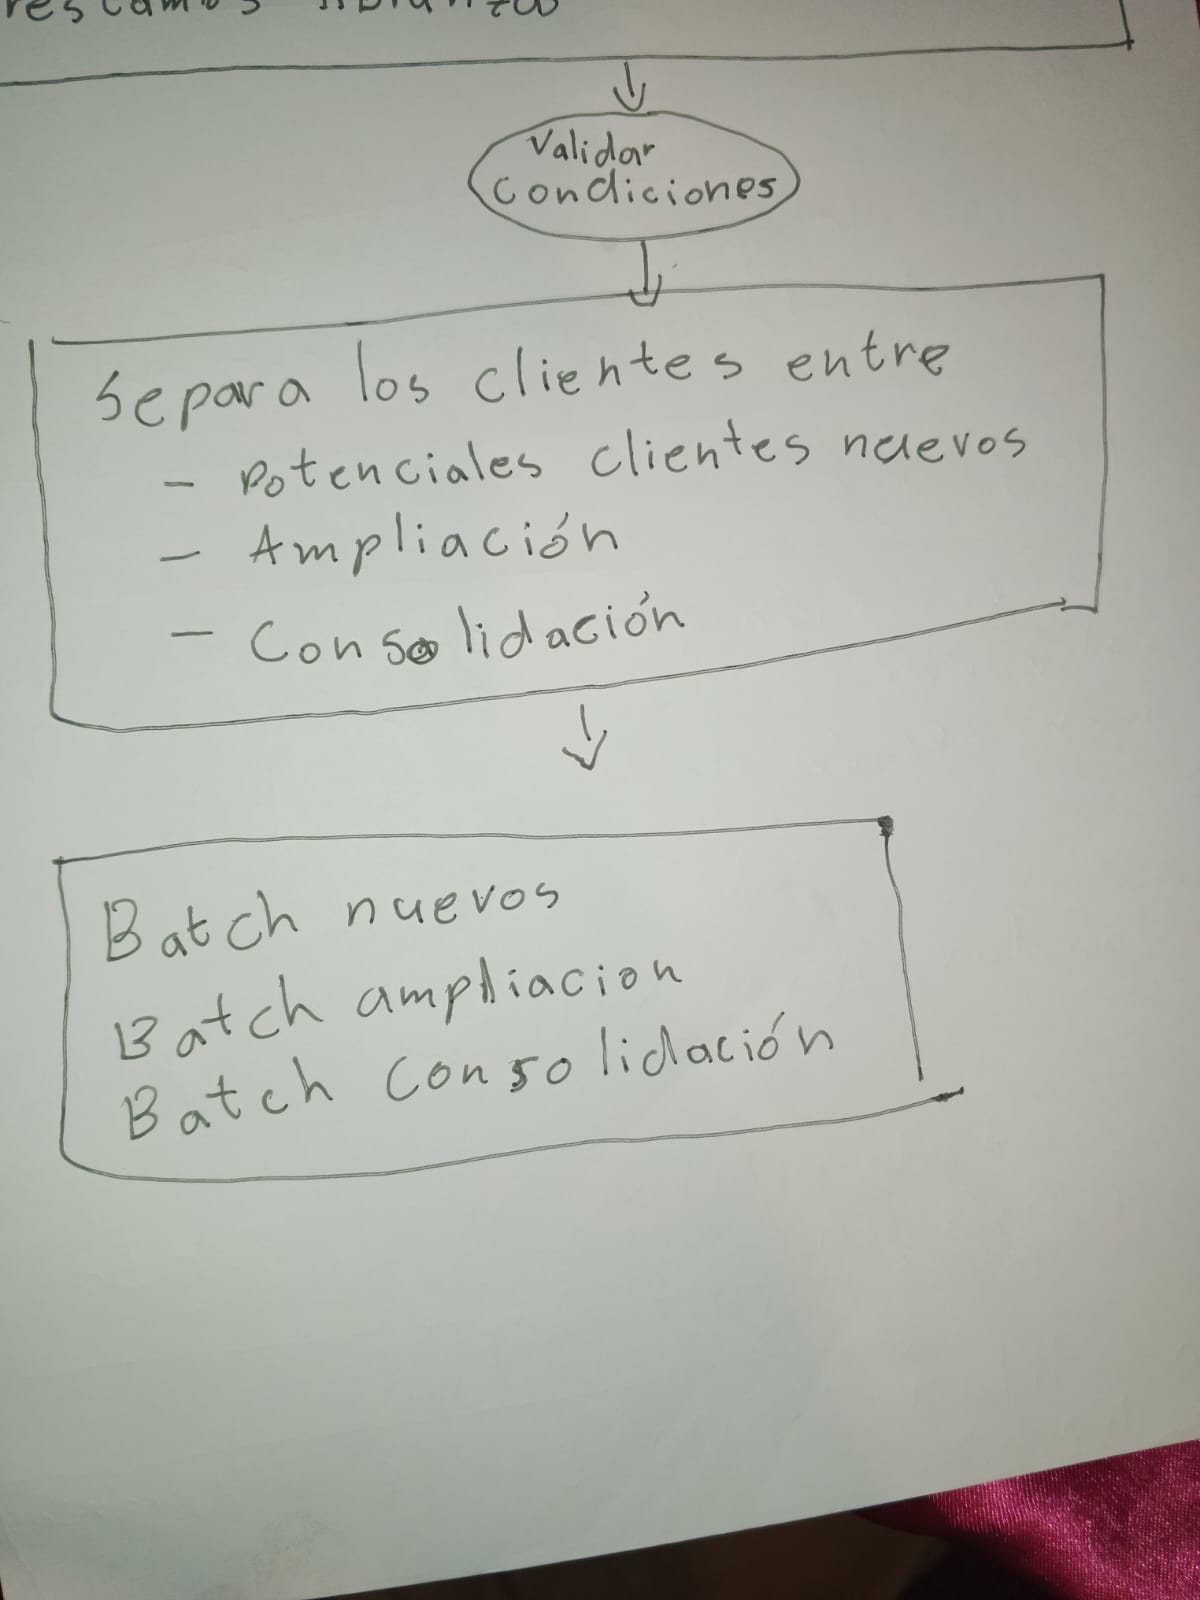 Validar
condiciones
Separa los clientes entre
- potenciales clientes nuevos
- Ampliación
- Consolidación
Batch nuevos
Batch ampliacion
Batch consolidación